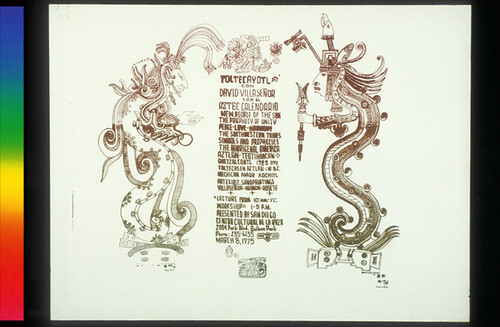 TOLTECAYOTL
CON
DAVID VILLASEÑOR
CON EL
AZTEC CALENDARIO
NEW PEOPLE OF THE SUN
THE PROPHECY OF UNITY
PEACE-LOVE-HARMONY
THE SOUTHWESTERN TRIBES
SYMBOLS AND PROPHECIES
THE ABORIGENAL AMERICA
AZTLAN-TEOTIHUACAN-
QUETZALCOATL
TOLTECAS EN AZTLAN
MECHICAN AMOR XOCHITL
ART EXHIBIT SANDPAINTINGS
VILLASEÑOR
LECTURE FROM 10:
WORKSHOP 1-5 P.M.
PRESENTED BY SAN DIEGO
CENTRO CULTURAL DE LA RAZA
2004 Park Blvd. Balboa Park
Phone: 235-6135
MARCH 8, 1975